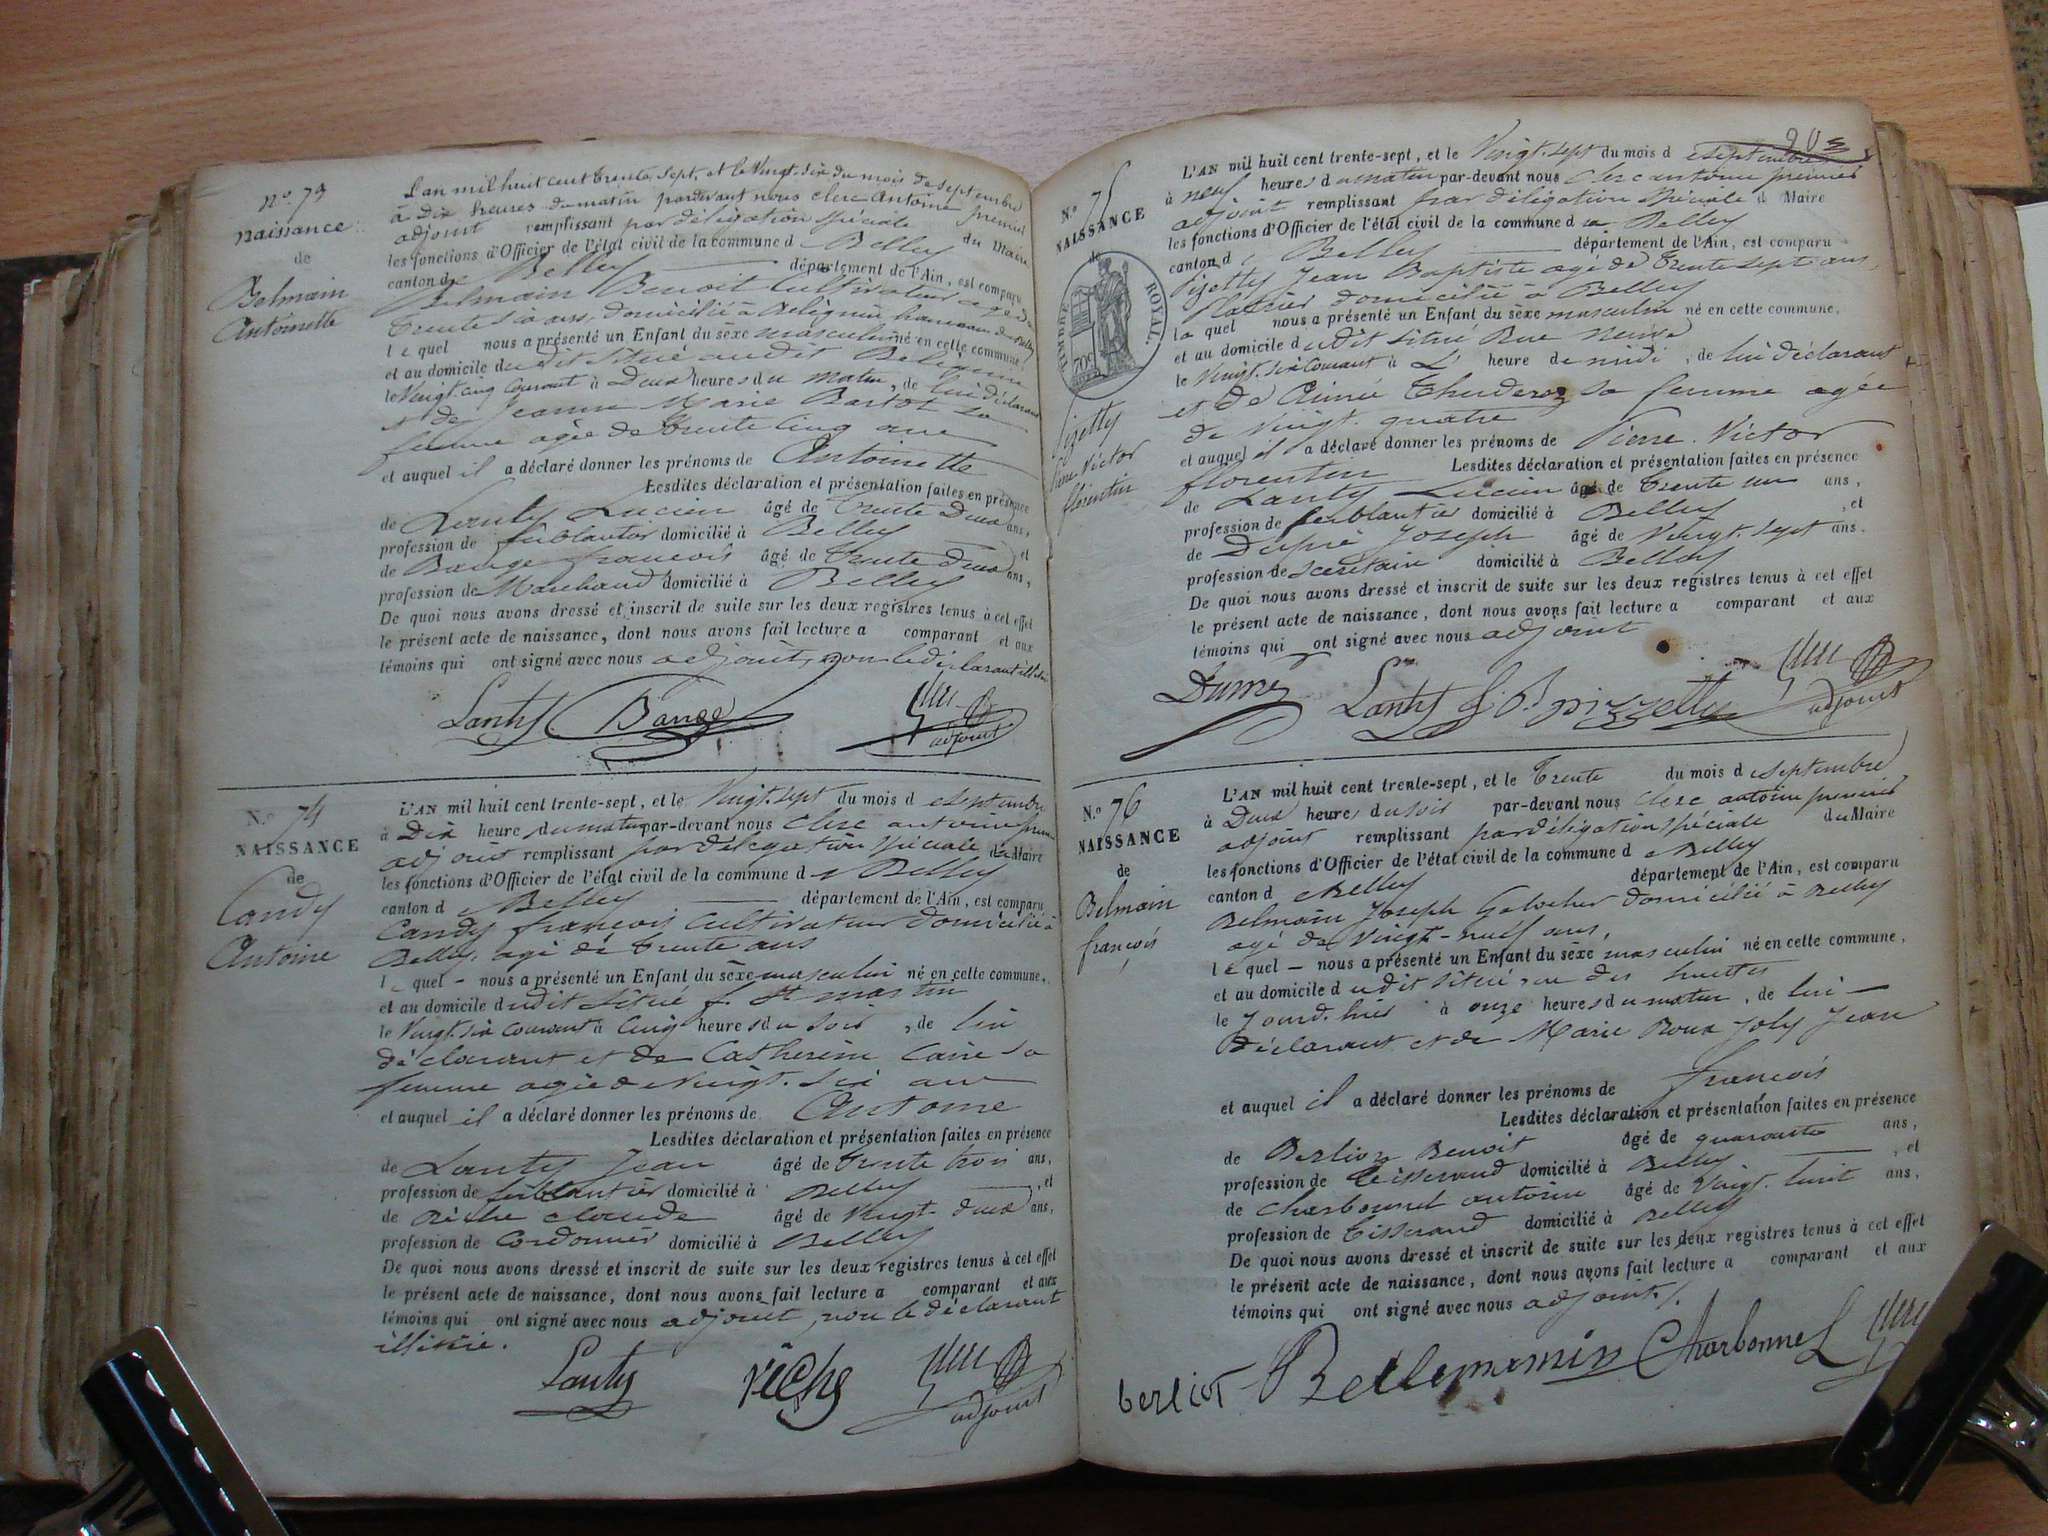 N.º 73
naissance
de
Belmain
Antoinette
L'an mil huit cent trente sept, et le vingt-six du mois de septembre
à Dix heures du matin pardevant nous Clerc Antoine premier
adjoint remplissant par déligation spéciale du Maire
les fonctions d'Officier de l'état civil de la commune d e Belley
canton de Belley département de l'Ain, est comparu
Belmain Benoit Cultivateur agé de
Trente six ans, domicilié à hameau de Belley
le quel nous a présenté un Enfant du sèxe masculin né en cette commune,
et au domicile dudit situé audit
le Vingt cinq Courant à Deux heures du matin, de lui déclarant
et de Jeanne Marie sa
femme agée de trente cinq ans
et auquel il a déclaré donner les prénoms de Antoinette
Lesdites déclaration et présentation faites en présence
de Lanty Lucien âgé de Trente Deux ans,
profession de ferblantier domicilié à Belley et
de Bange françois âgé de Trente Deux ans,
profession de Marchand domicilié à Belley
De quoi nous avons dressé et inscrit de suite sur les deux registres tenus à cet effet
le présent acte de naissance, dont nous avons fait lecture a comparant et aux
témoins qui ont signé avec nous adjoint, non le déclarant
Lanty Bange Clerc adjoint
N.º 74
NAISSANCE
de
Candy
Antoine
L'AN mil huit cent trente-sept, et le Vingt-sept du mois d e septembre
à Dix heure du matin par-devant nous Clerc antoine premier
adjoint remplissant par délégation spéciale du Maire
les fonctions d'Officier de l'état civil de la commune d e Belley
canton d e Belley département de l'Ain, est comparu
Candy françois Cultivateur domicilié à
Belley, agé de trente ans
l e quel - nous a présenté un Enfant du sèxe masculin né en cette commune,
et au domicile dudit situé f. St martin
le Vingt-six courant à Cinq heures du soir, de lui
déclarant et de Catherine Caire sa
femme agée de Vingt-six ans
et auquel il a déclaré donner les prénoms de Antoine
Lesdites déclaration et présentation faites en présence
de Lanty Jean âgé de trente trois ans,
profession de ferblantier domicilié à Belley, et
de claude âgé de Vingt-deux ans,
profession de Cordonnier domicilié à Belley
De quoi nous avons dressé et inscrit de suite sur les deux registres tenus à cet effet
le présent acte de naissance, dont nous avons fait lecture a comparant et aux
témoins qui ont signé avec nous adjoint, non le déclarant
illitéré.
Lanty Clerc adjoint
90
N.º 75
NAISSANCE
de
TIMBRE ROYAL.
70 c
Pizetty
Pierre Victor
florentin
L'AN mil huit cent trente-sept, et le Vingt-sept du mois d e septembre
à neuf heures du matin par-devant nous Clerc antoine premier
adjoint remplissant par déligation spéciale d Maire
les fonctions d'Officier de l'état civil de la commune d e Belley
canton d e Belley département de l'Ain, est comparu
Pizetty Jean Baptiste agé de Trente sept ans,
Platrier domicilié à Belley
le quel nous a présenté un Enfant du sèxe masculin né en cette commune,
et au domicile dudit situé Rue Neuve
le Vingt-six Courant à L' heure de midi, de lui déclarant
et de Aimée Thuderoz sa femme agée
de Vingt-quatre
et auquel il a déclaré donner les prénoms de Pierre Victor
florentin Lesdites déclaration et présentation faites en présence
de Lanty Lucien âgé de Trente un ans,
profession de ferblantier domicilié à Belley, et
de Joseph âgé de Vingt-sept ans.
profession de domicilié à Belley
De quoi nous avons dressé et inscrit de suite sur les deux registres tenus à cet effet
le présent acte de naissance, dont nous avons fait lecture a comparant et aux
témoins qui ont signé avec nous adjoint
Lanty J. B. pizzetty Clerc adjoint
N.º 76
NAISSANCE
de
Belmain
françois
L'AN mil huit cent trente-sept, et le Trente du mois d e septembre
à Deux heures du soir par-devant nous Clerc antoine premier
adjoint remplissant par déligation spéciale du Maire
les fonctions d'Officier de l'état civil de la commune d e Belley
canton d e Belley département de l'Ain, est comparu
Belmain Joseph Galocher domicilié à Belley
agé de Vingt-neuf ans,
l e quel - nous a présenté un Enfant du sèxe masculin né en cette commune,
et au domicile dudit situé rue des huottes
le Jourd'hui à onze heures du matin, de lui
Déclarant et de Marie Roux Joly Jean
et auquel il a déclaré donner les prénoms de françois
Lesdites déclaration et présentation faites en présence
de Berlioz Benoit âgé de quarante ans,
profession de tisserand domicilié à Belley, et
de Charbonnel antoine âgé de Vingt-huit ans,
profession de Tisserand domicilié à Belley
De quoi nous avons dressé et inscrit de suite sur les deux registres tenus à cet effet
le présent acte de naissance, dont nous avons fait lecture a comparant et aux
témoins qui ont signé avec nous adjoint./.
berliot Bellemin Charbonnel Clerc